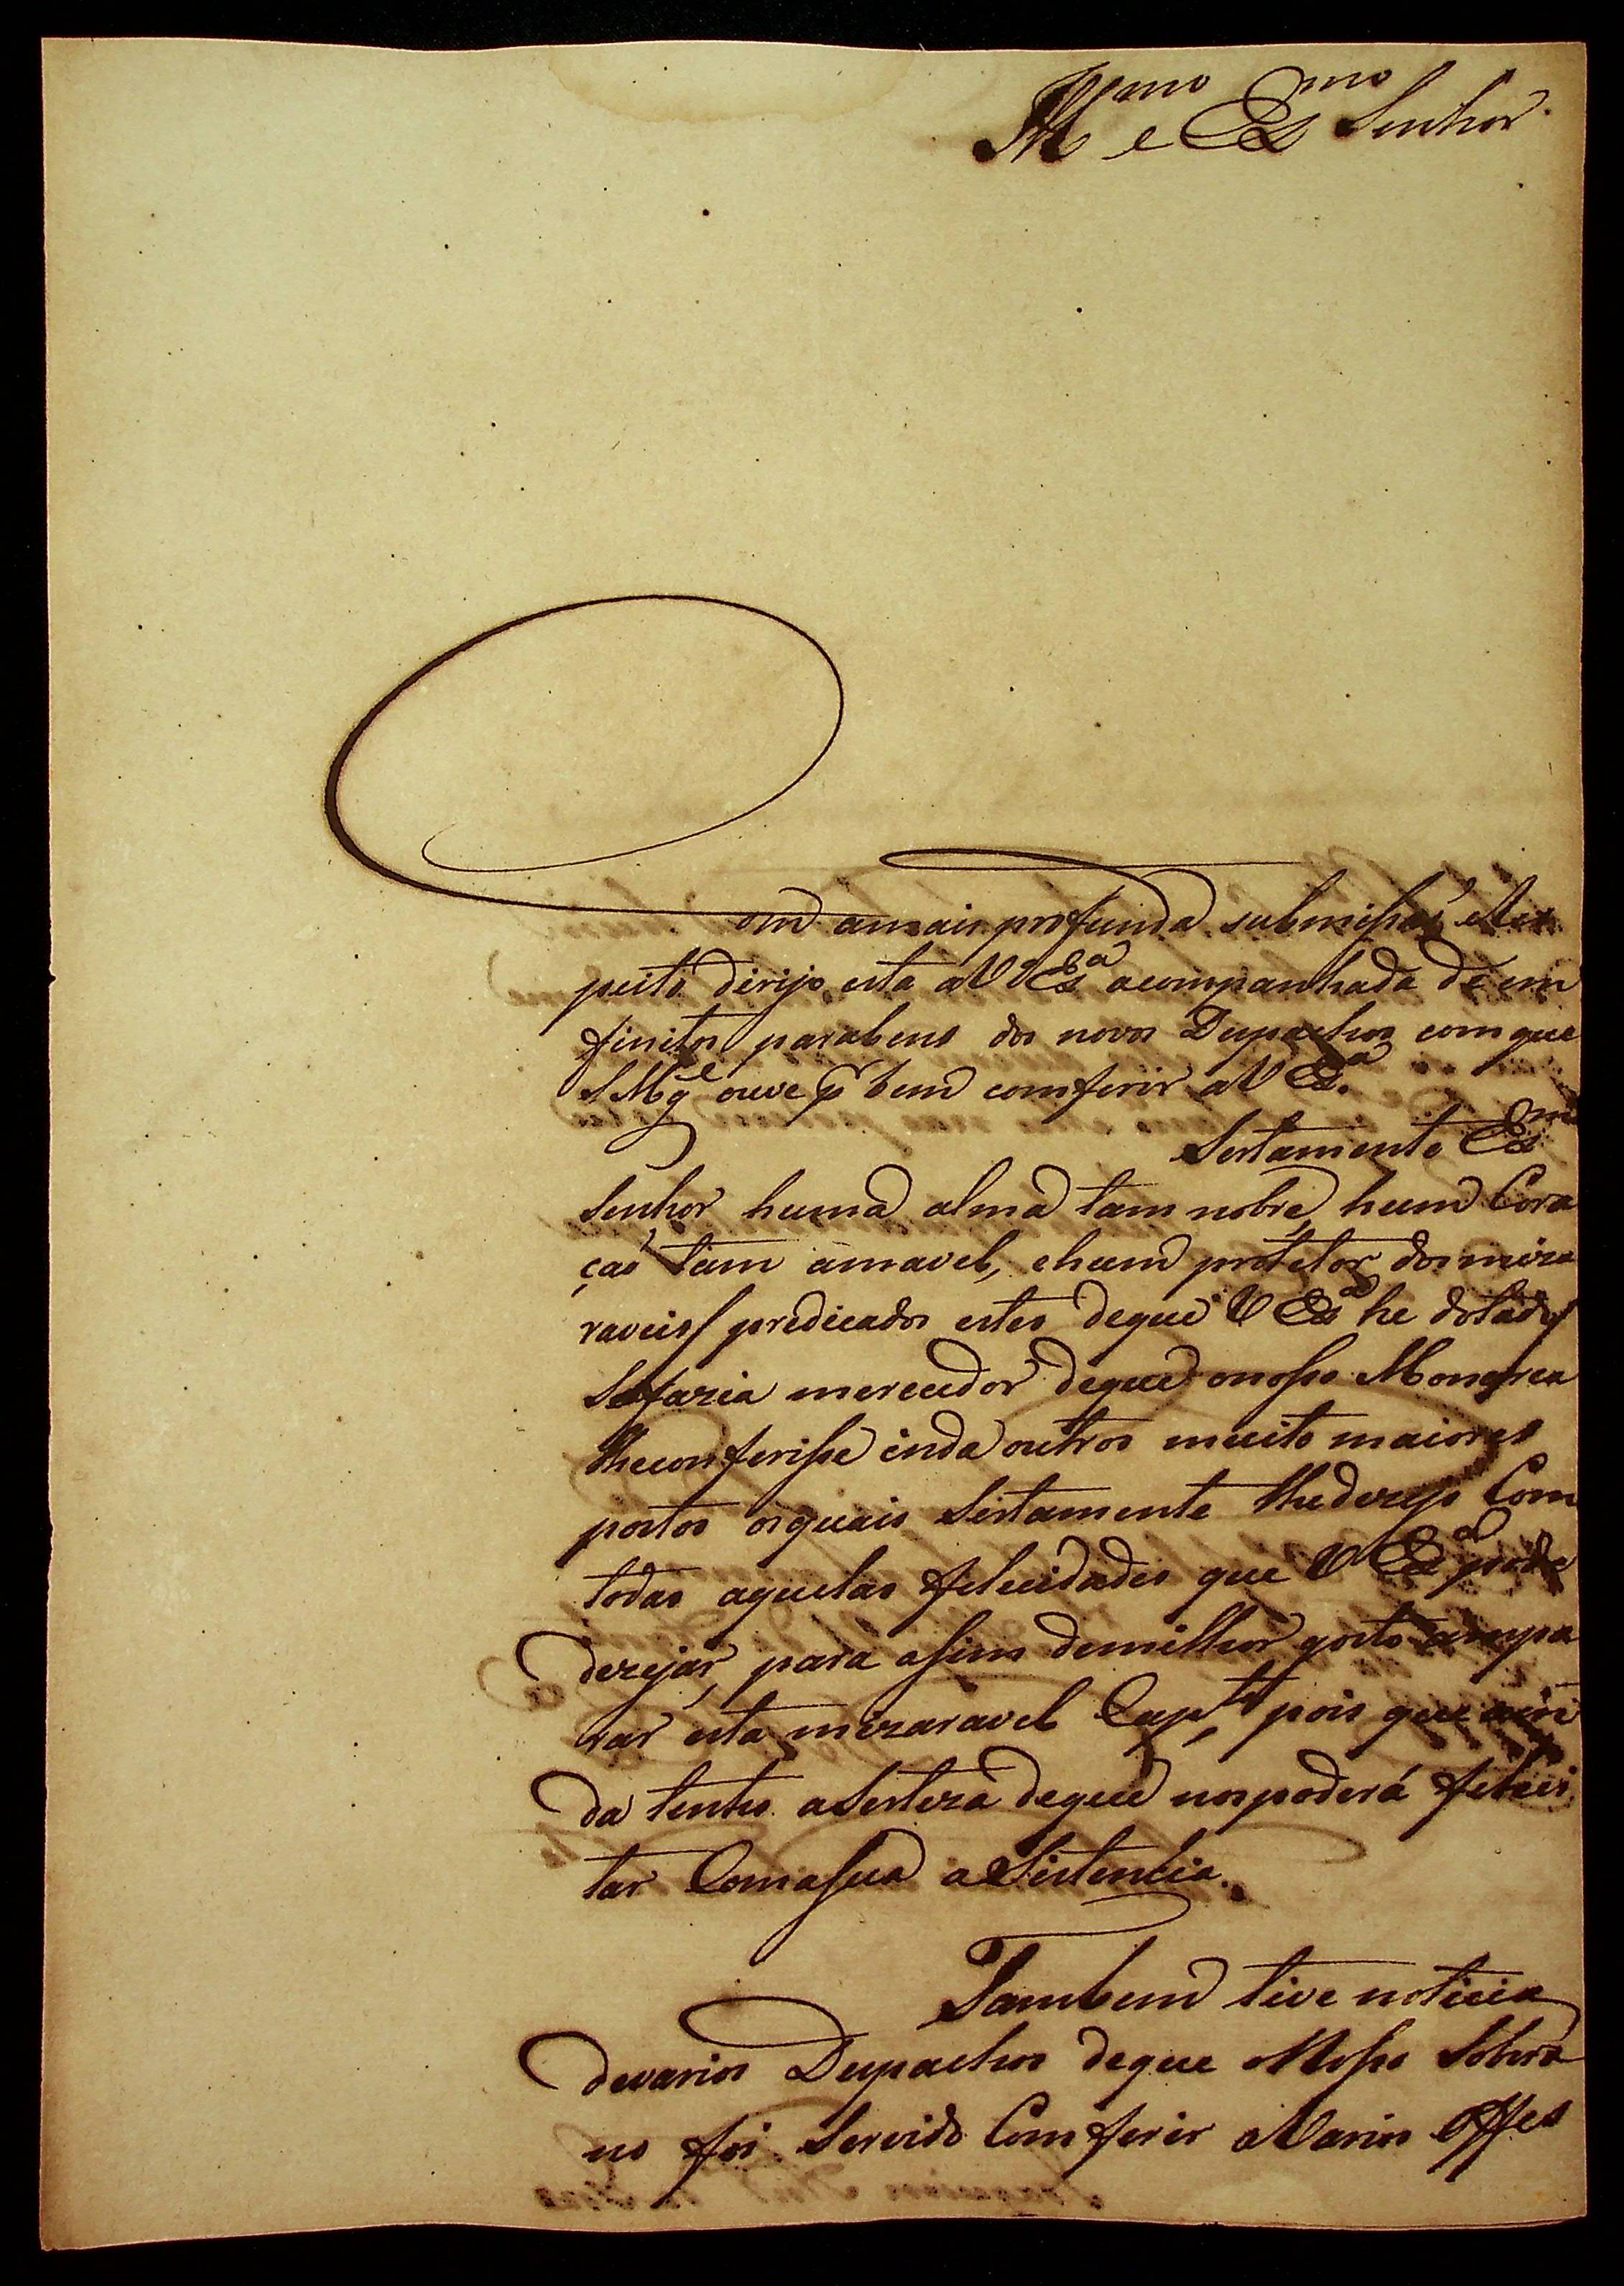 Illmo e Exmo Senhor.
Com amais profunda submissaõ, eRes
peito dirijo esta aV Exa acompanhada de em
finitos parabens dos novos Despachos com que
S Mge ouve pr bem comferir aV Exa.
Sertamente Exmo
Senhor huma alma tam nobre, hum Cora
çaõ tam amavel, ehum protetor dos mize
raveis/ predicados estes deque V Exa he dotado/
Sefazia mereedor deque onosso Monarca
lheconferisse inda outros muito maiores
postos osquais Sertamente lhedezejo Com
todas aquelas felecidades que V Exa pode
dezejar, para asim demilhor gosto ampa
rar esta mizaravel Capta pois que ain
da tenho aSerteza deque nospoderá felici
tar Comasua aSistencia.
Tambem tive noticia
devarios Despachos deque oNosso Sobera
no foi Servido Comferir aVarios Offes